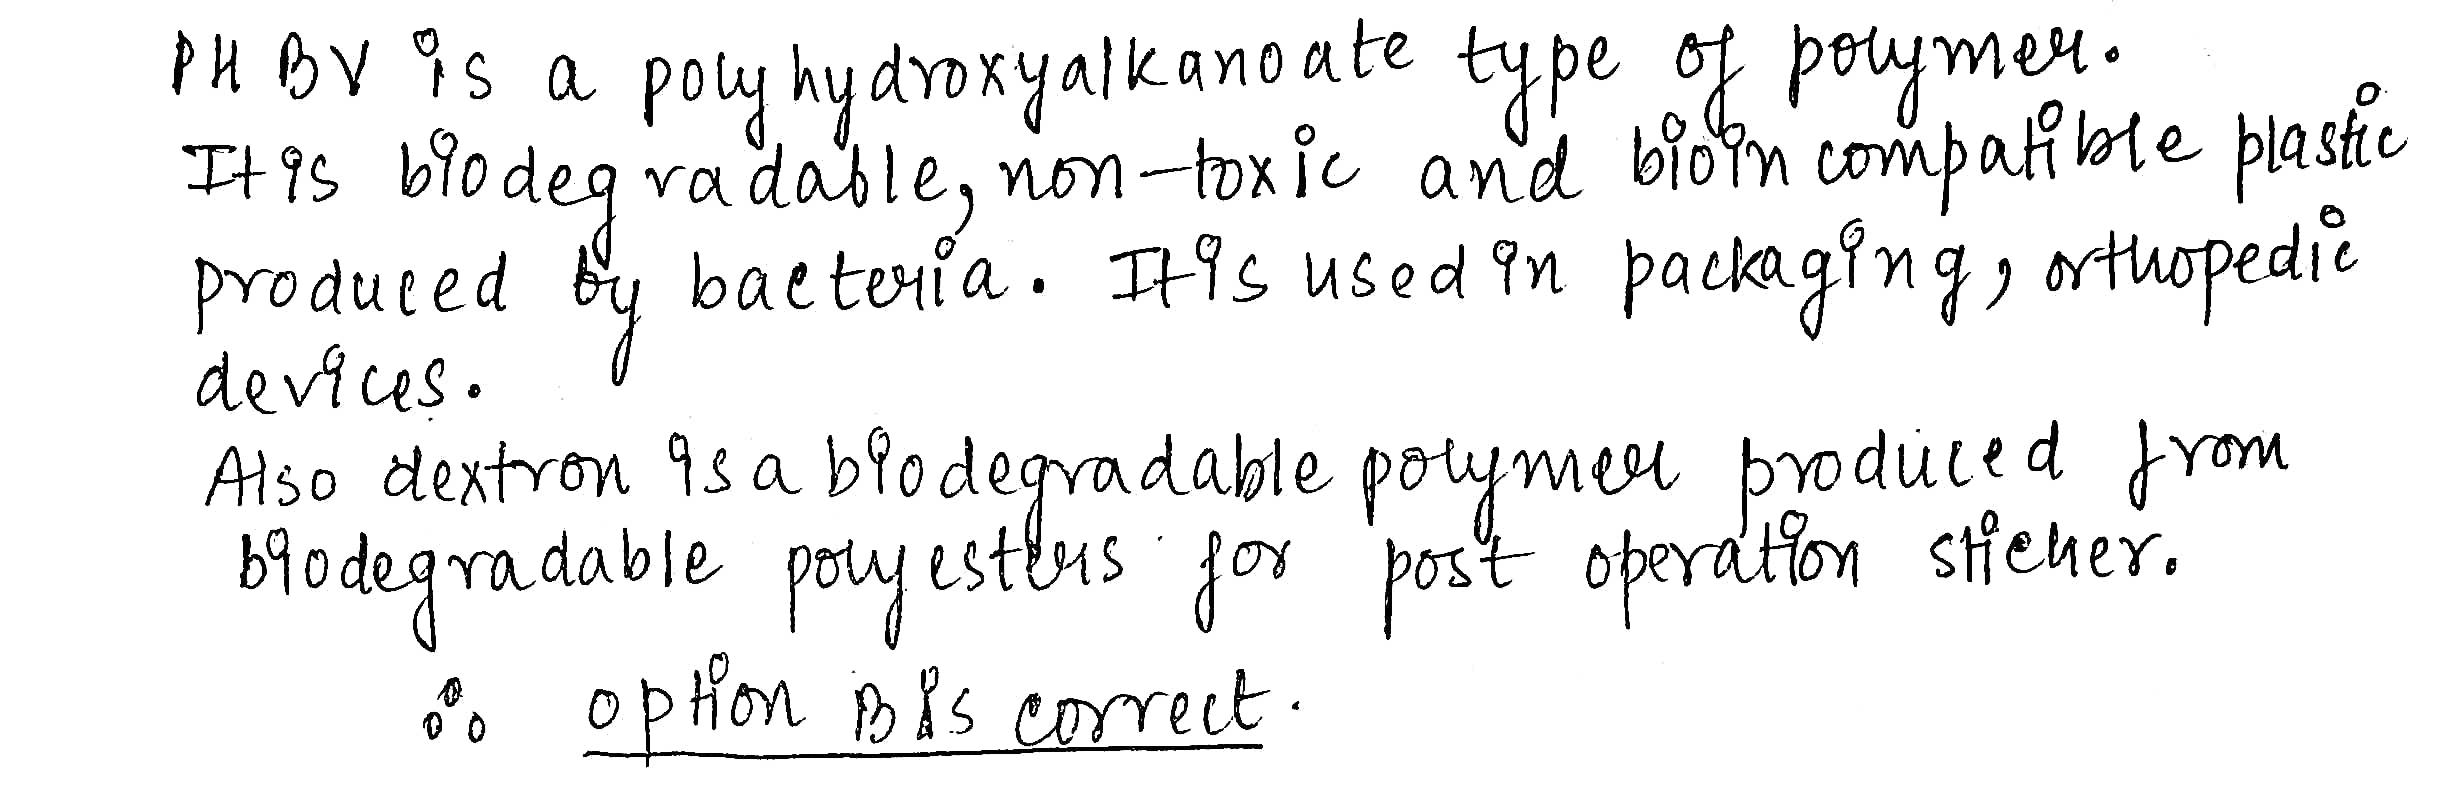 PHBV is a polyhydroxyalkanoate type of polymer.
It is biodegradable, non-toxic and bioincompatible plastic
produced by bacteria. It is used in packaging, orthopedic
devices.
Also dextron is a biodegradable polymer produced from
biodegradable polyesters for post operation sticher.
∴ option B is correct.